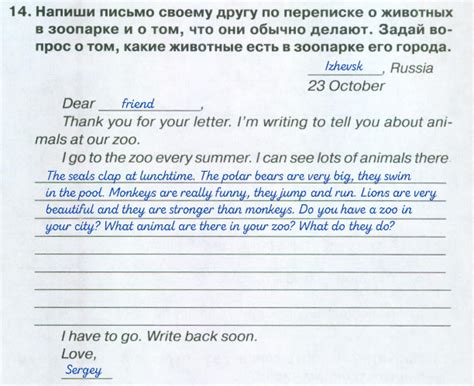 14. Напиши письмо своему другу по переписке о животных
в зоопарке и о том, что они обычно делают. Задай во-
прос о том, какие животные есть в зоопарке его города.
Izhevsk, Russia
23 October
Dear friend,
Thank you for your letter. I'm writing to tell you about ani-
mals at our zoo.
I go to the zoo every summer. I can see lots of animals there
The seals clap at lunchtime. The polar bears are very big, they swim
in the pool. Monkeys are really funny, they jump and run. Lions are very
beautiful and they are stronger than monkeys. Do you have a zoo in
your city? What animal are there in your zoo? What do they do?
I have to go. Write back soon.
Love,
Sergey